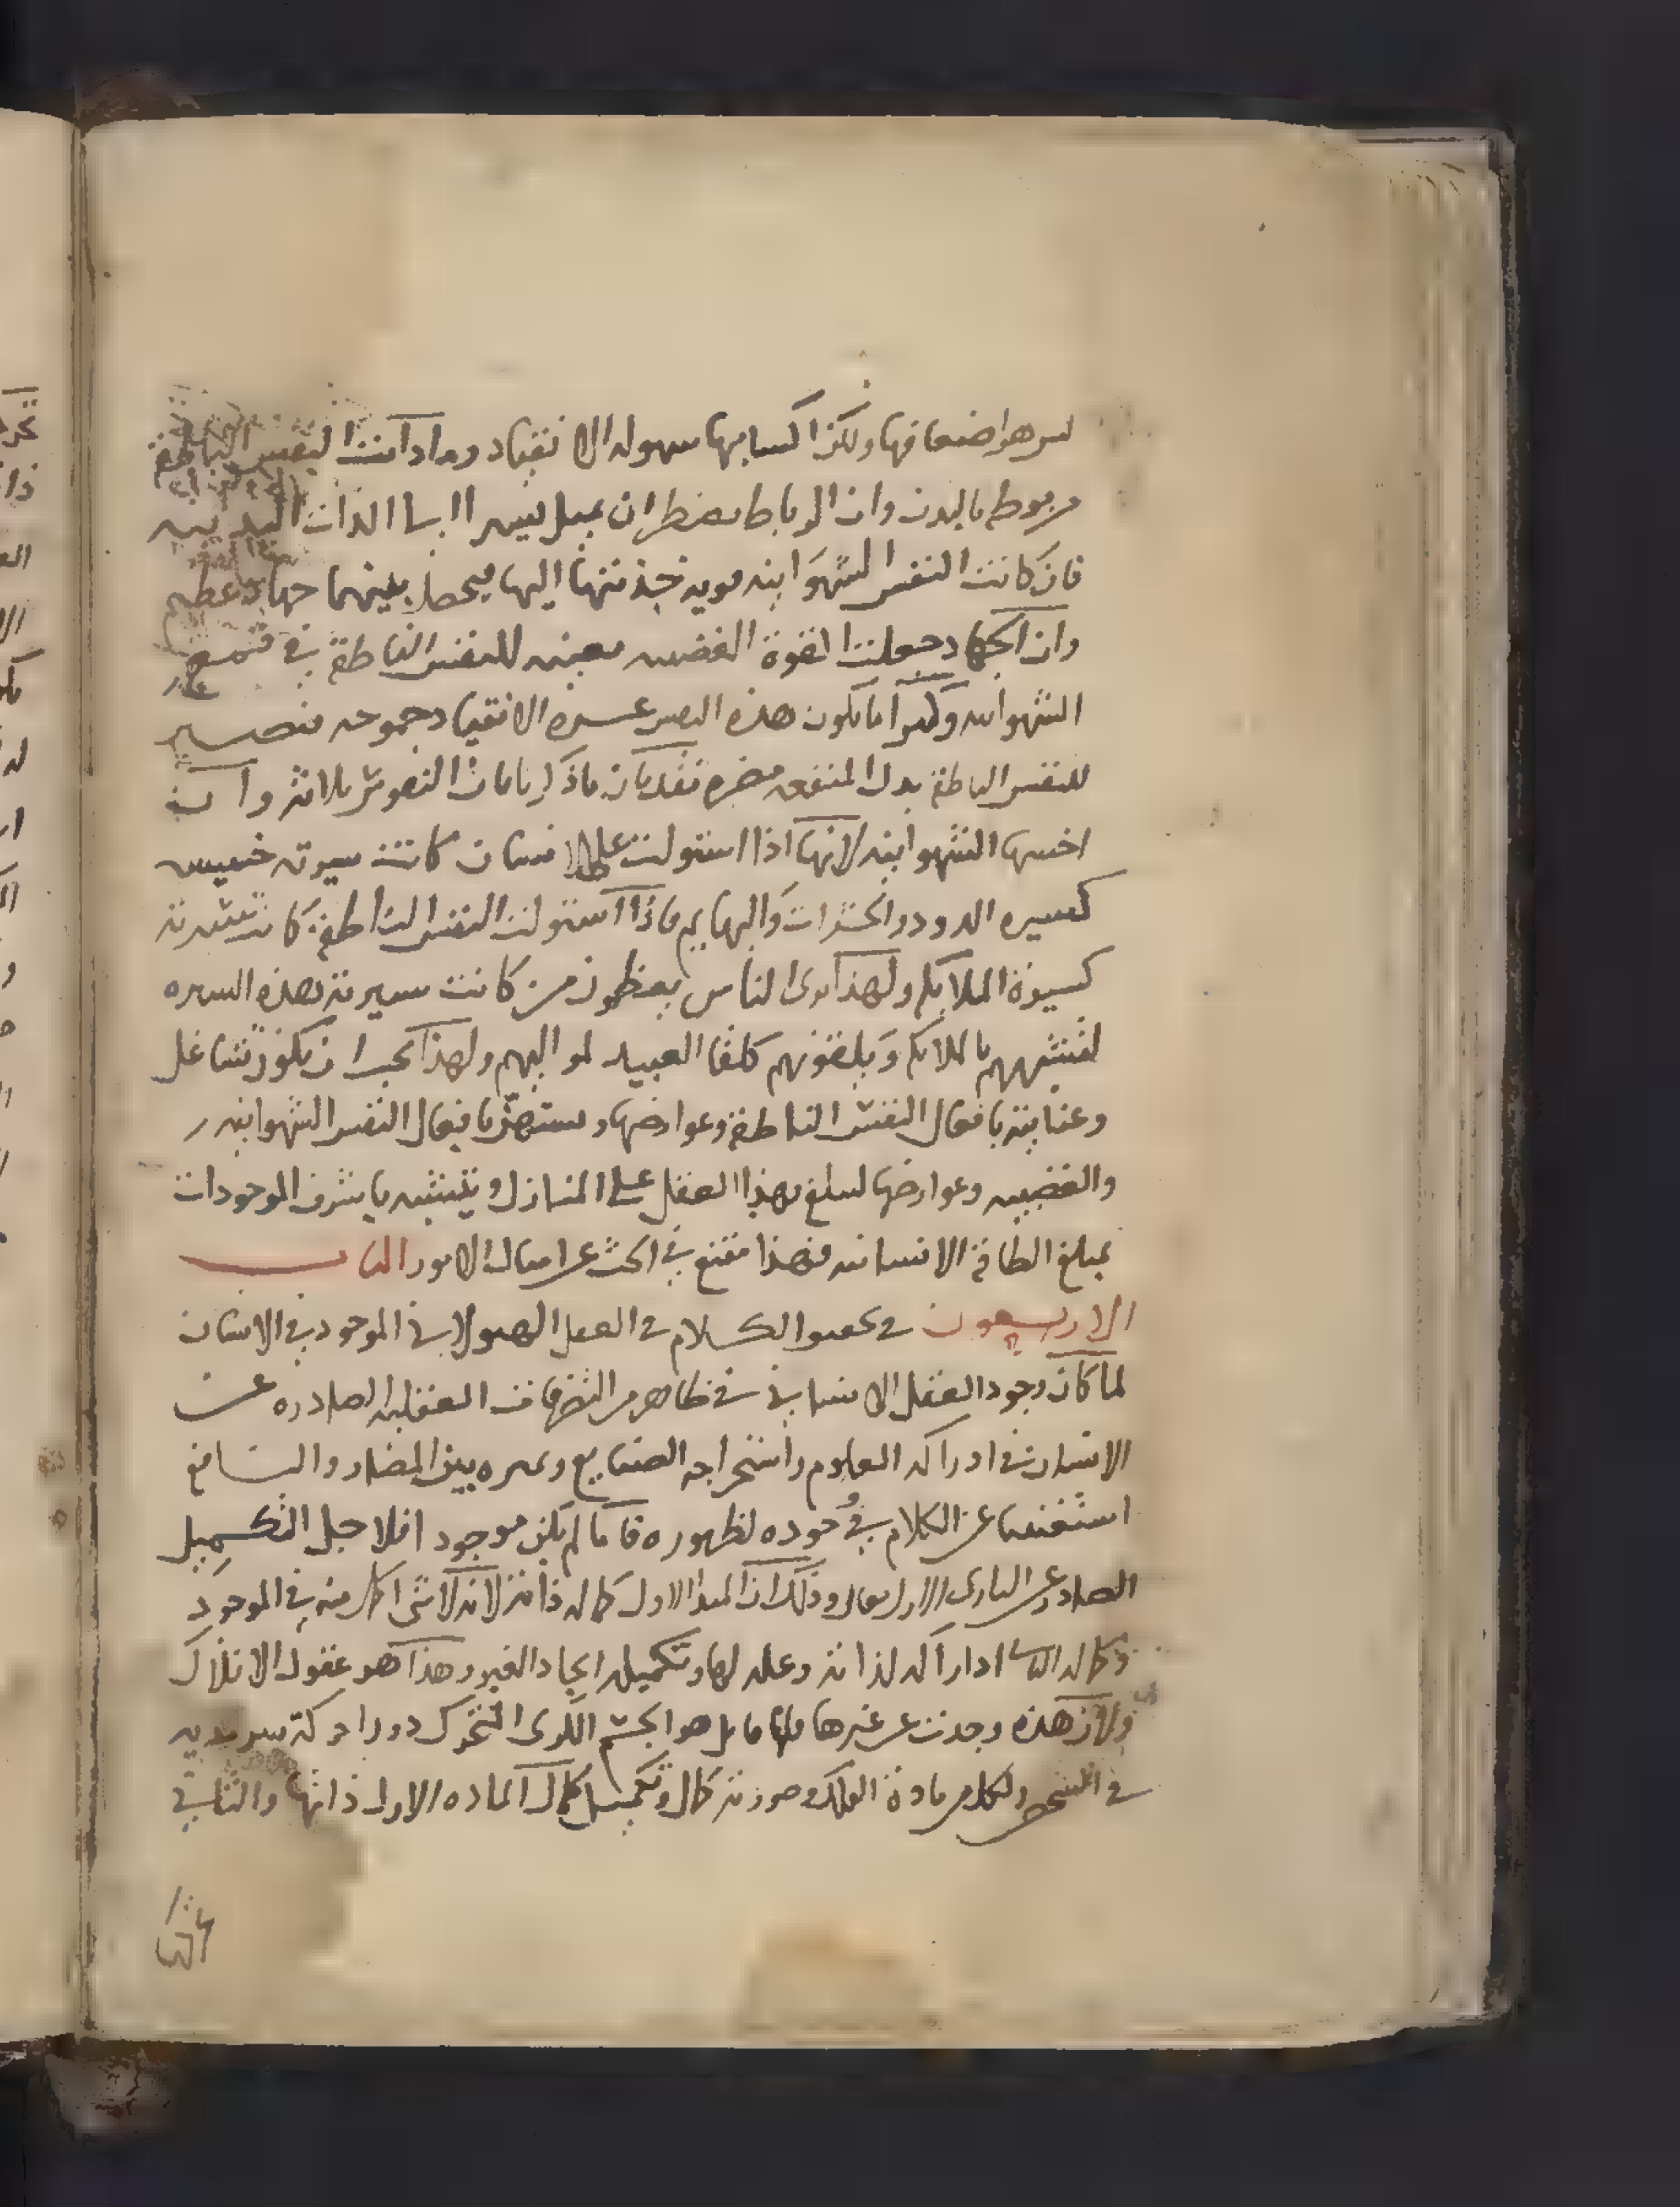 ليس هو اضعافها ولكن اكسابها سهولة الانقياد وما دامت النفس الناطقة
مربوطة بالبدن وان الرباط يضطر ان يميل يسيرا الى اللذات البدنية
فان كانت النفس الشهوانية قوية جذبتها اليها فيحصل بينهما جهاد عظيم
وان الجهاد جعلت القوة الغضبية معينة للنفس الناطقة في قمع
الشهوانية وكثيرا ما يكون هذه النفس عسرة الانقياد جموحة فتصير
للنفس الناطقة بدل المنفعة مضرة فقد بان ما ذكرنا بان النفوس ثلاثة وان
اخسها الشهوانية لانها اذا استولت على الانسان كانت سيرته خسيسه
كسيره الدود والحشرات والبهايم فاذا استولت النفس الناطقة كانت سيرته
كسيرة الملايكه ولهذا نرى الناس يعظمون من كانت سيرته بهذه السيره
لتشبههم بالملايكه ويلقونهم كلقا العبيد لمواليهم ولهذا يجب ان يكون تشاغل
وعنايته بافعال النفس الناطقة وعوارضها وبافعال النفس الشهوانيه
والغضبيه وعوارضها لسلغ بهذا العقل على المنازل ويتشبه باشرف الموجودات
بمبلغ الطاقة الانسانيه فهذا مقنع في البحث عن امثال الامور الباب
الاربعون في الكلام في العقل الهيولاني الموجود في الانسان
لما كان وجود العقل الانساني في ظاهر من التصرفات العقليه الصادره عن
الانسان في ادراكه العلوم واستخراجه الصنايع وتميزه بين المضار والمنافع
استغنينا عن الكلام في وجوده لظهوره فاما لم يكن موجود افلاجل التكميل
الصادر عن الباري الاول تعالى وذلك ان المبدا الاول كماله ذاته لانه لا شي اكمل منه في الموجود
وكماله الثاني ادراكه لذاته وعلمه لها وتكميله ايجاد الغير وهذا هو عقول الافلاك
ولان هذه وجدت عن غيرها هو الجسم الكري المتحرك دورا حركة سرمديه
في الشخص ولكل من مادة الفلك وصورته كمال وتكميل كمال الماده الاول ذاتها والثاني